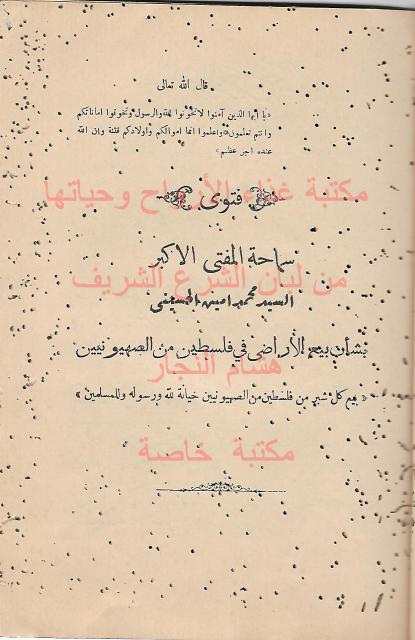 قال الله تعالى
«يا أيها الذين آمنوا لا تخونوا الله والرسول وتخونوا اماناتكم
وانتم تعلمون» «واعلموا انما اموالكم واولادكم فتنة وإن الله
عنده اجر عظيم»
مكتبة غذاء الأرواح وحياتها
فتوى
سماحة المفتي الأكبر
من لبان الشرع الشريف
السيد محمد امين الحسيني
بشأن بيع الأراضي في فلسطين من الصهيونيين
هشام النجار
« بيع كل شبر من فلسطين من الصهيونيين خيانة لله ورسوله وللمسلمين »
مكتبة خاصة